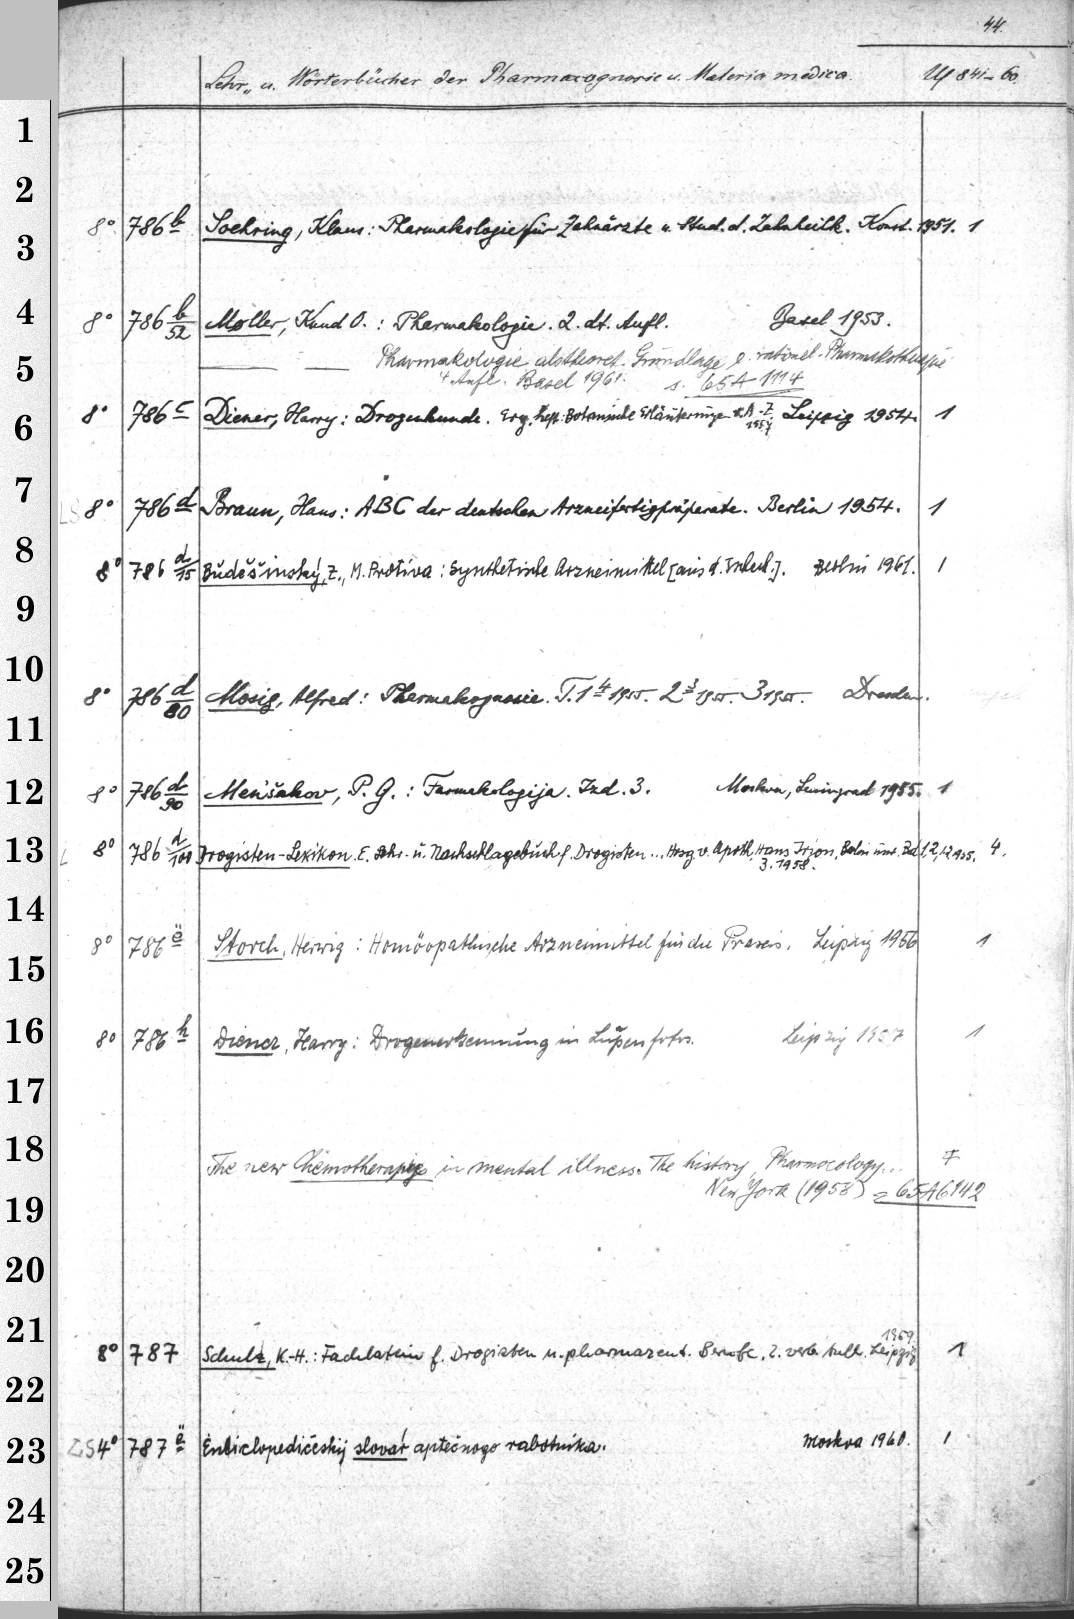 44.
Lehr- u. Wörterbücher der Pharmacognosie u. Materia medica. Uf 841-60.
1
2
8° 786 b Soehring, Klaus: Pharmakologie für Zahnärzte u. Stud. d. Zahnheilk. Konst. 1951. 1
3
4
8° 786 b/52 Møller, Knud O.: Pharmakologie. 2. dt. Aufl. Basel 1953.
Pharmakologie als theoret. Grundlage e. rationel. Pharmakotherapie
5
4. Aufl. Basel 1961. s. 65A 1114
8° 786 c Diener, Harry: Drogenkunde. Erg. heft: Botanische Erläuterunge v. A-Z. 1957 Leipzig 1954. 1
6
7
ZS 8° 786 d Braun, Hans: ABC der deutschen Arzneifertigpräparate. Berlin 1954. 1
8
8° 786 d/15 Buděšinský, Z., M. Protiva: Synthetische Arzneimittel [aus d. Tschech.]. Berlin 1961. 1
9
10
8° 786 d/80 Mosig, Alfred: Pharmakognosie. T. 1 4 1955. 2 3 1955. 3 1955. Dresden.
11
12
8° 786 d/90 Men'šakov, P. G.: Farmakologija. Izd. 3. Moskva, Leningrad 1955. 1
13
8° 786 d/100 Drogisten-Lexikon. E. Lehr- u. Nachschlagebuch f. Drogisten... Hrsg v. Apoth. Hans Irion. Berlin usw. Bd 1,2,1 2 1955. 4.
3. 1958.
14
8° 786 e Storch, Herwig: Homöopathische Arzneimittel für die Praxis. Leipzig 1956 1
15
16
8° 786 h Diener, Harry: Drogenerkennung in Lupenfotos. Leipzig 1957 1
17
18
The new Chemotherapie in mental illness. The history, Pharmocology... 7
New York (1958) = 65A6142
19
20
21
1969
8° 787 Schulz, K.-H.: Fachlatein f. Drogisten u. pharmazeut. Berufe. 2. verb. Aufl. Leipzig 1
22
23
ZS 4° 787 a Ėnciclopedičeskij slovar' aptečnogo rabotnika. Moskva 1960. 1
24
25